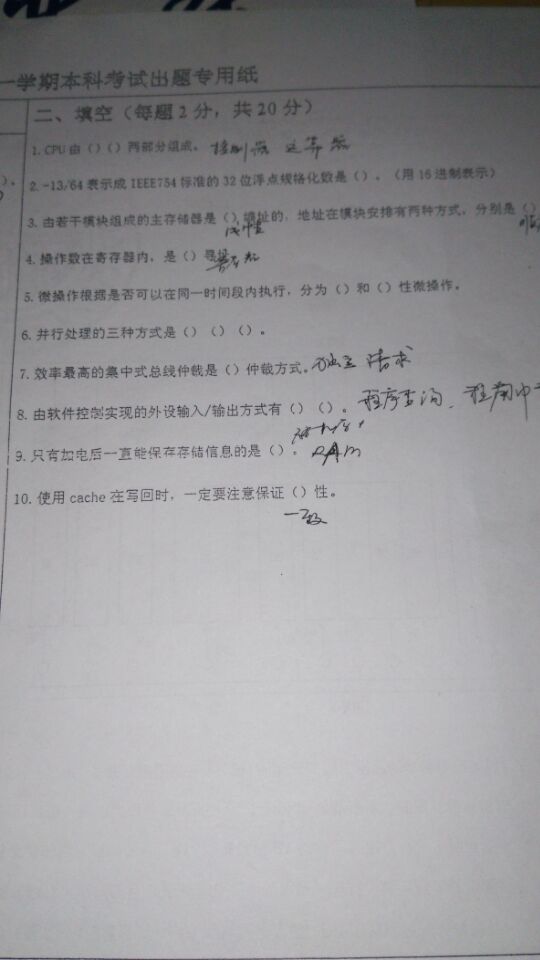 一学期本科考试出题专用纸
二、填空（每题2分，共20分）
1. CPU由（）（）两部分组成。 控制器 运算器
2. -13/64表示成IEEE754标准的32位浮点规格化数是（）。（用16进制表示）
3. 由若干模块组成的主存储器是（）编址的，地址在模块安排有两种方式，分别是（）
线性
4. 操作数在寄存器内，是（）寻址
寄存器
5. 微操作根据是否可以在同一时间段内执行，分为（）和（）性微操作。
6. 并行处理的三种方式是（）（）（）。
7. 效率最高的集中式总线仲裁是（）仲裁方式。 独立请求
8. 由软件控制实现的外设输入/输出方式有（）（）。 程序查询、程序中
9. 只有加电后一直能保存存储信息的是（）。 RAM
10. 使用cache在写回时，一定要注意保证（）性。
一致